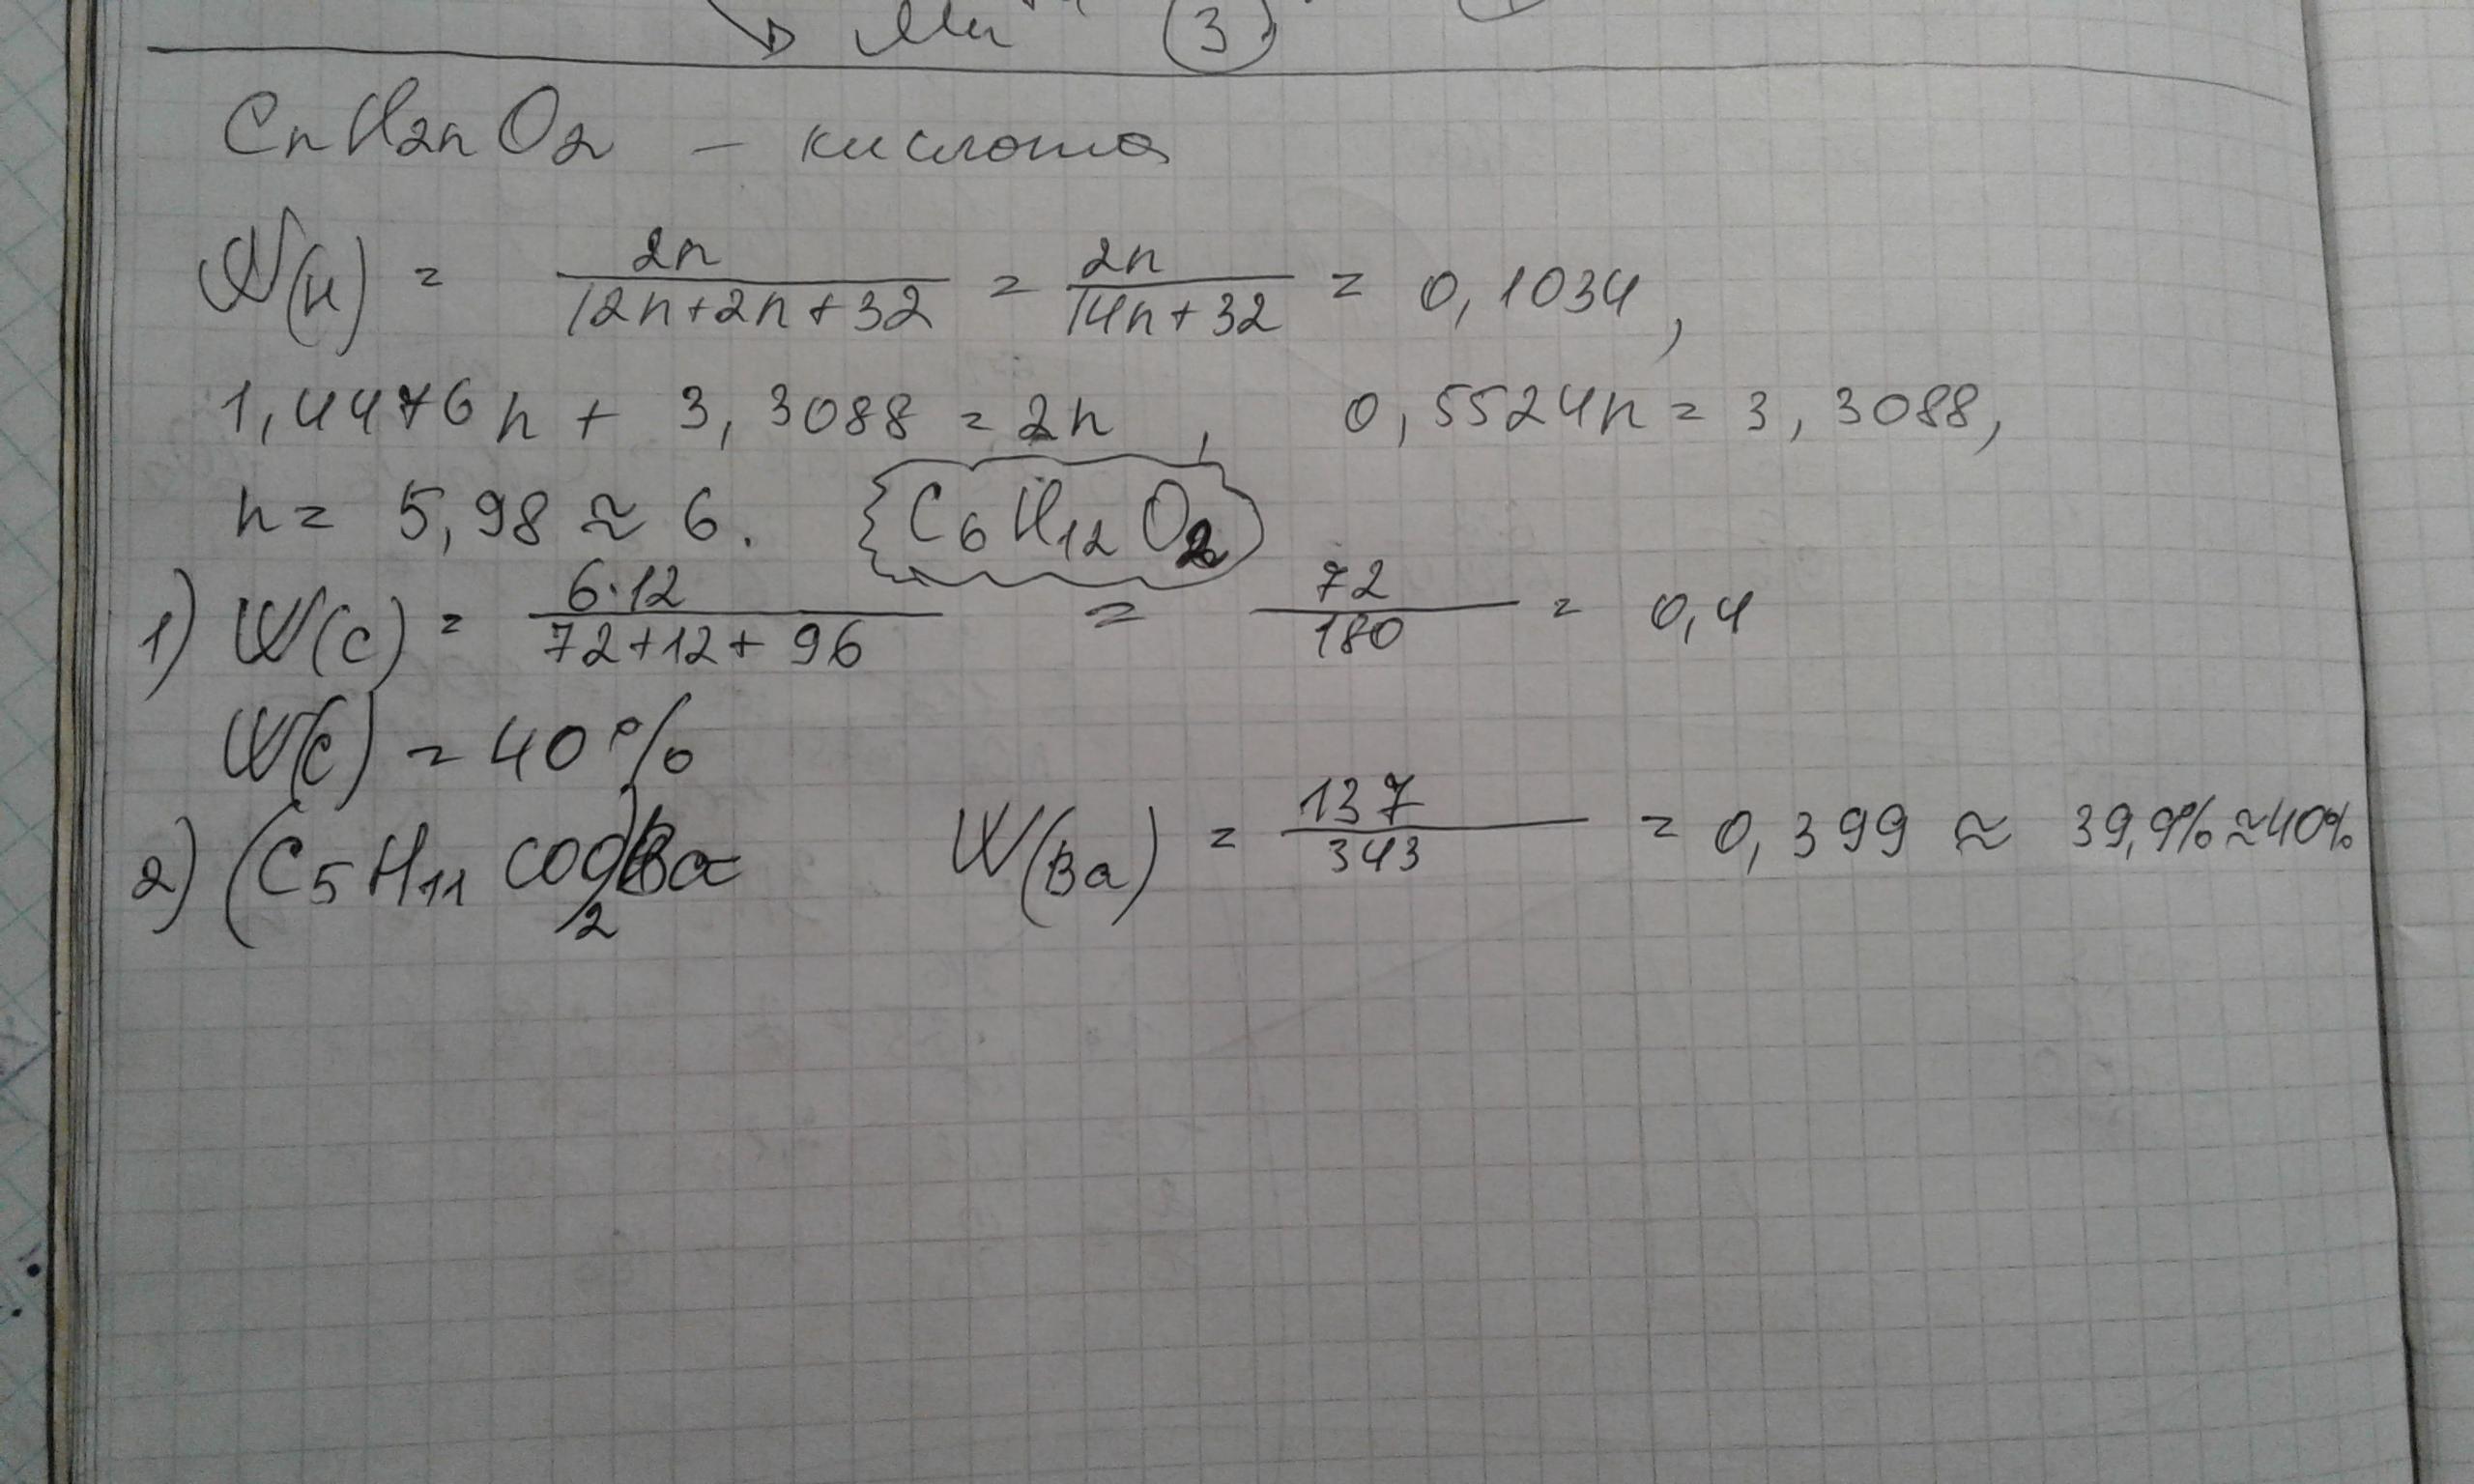 Mn 3
CnH2nO2 – кислота
W(H) = 2n/(12n+2n+32) = 2n/(14n+32) = 0,1034,
1,4476n + 3,3088 = 2n, 0,5524n = 3,3088,
n = 5,98 ≈ 6. C6H12O2
1) W(C) = 6·12/(72+12+96) = 72/180 = 0,4
W(C) = 40%
2) (C5H11COO)2Ba W(Ba) = 137/343 = 0,399 ≈ 39,9% ≈ 40%